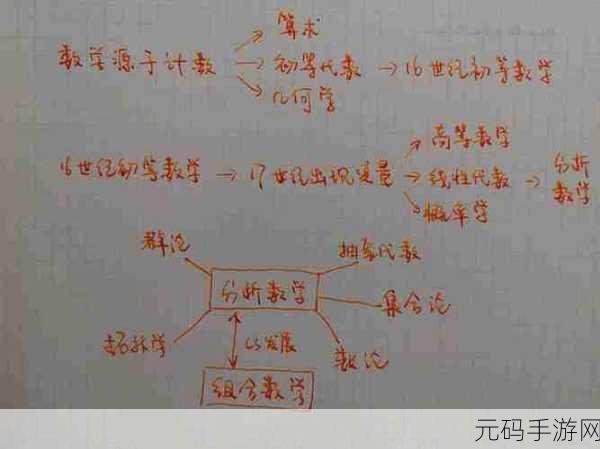 算术
数学源于计数 → 初等代数 → 16世纪初等数学
几何学
高等数学
16世纪初等数学 → 17世纪出现变量 → 线性代数 → 分析数学
概率学
群论
抽象代数
分析数学
集合论
拓扑学
CS发展
数论
组合数学
元码手游网